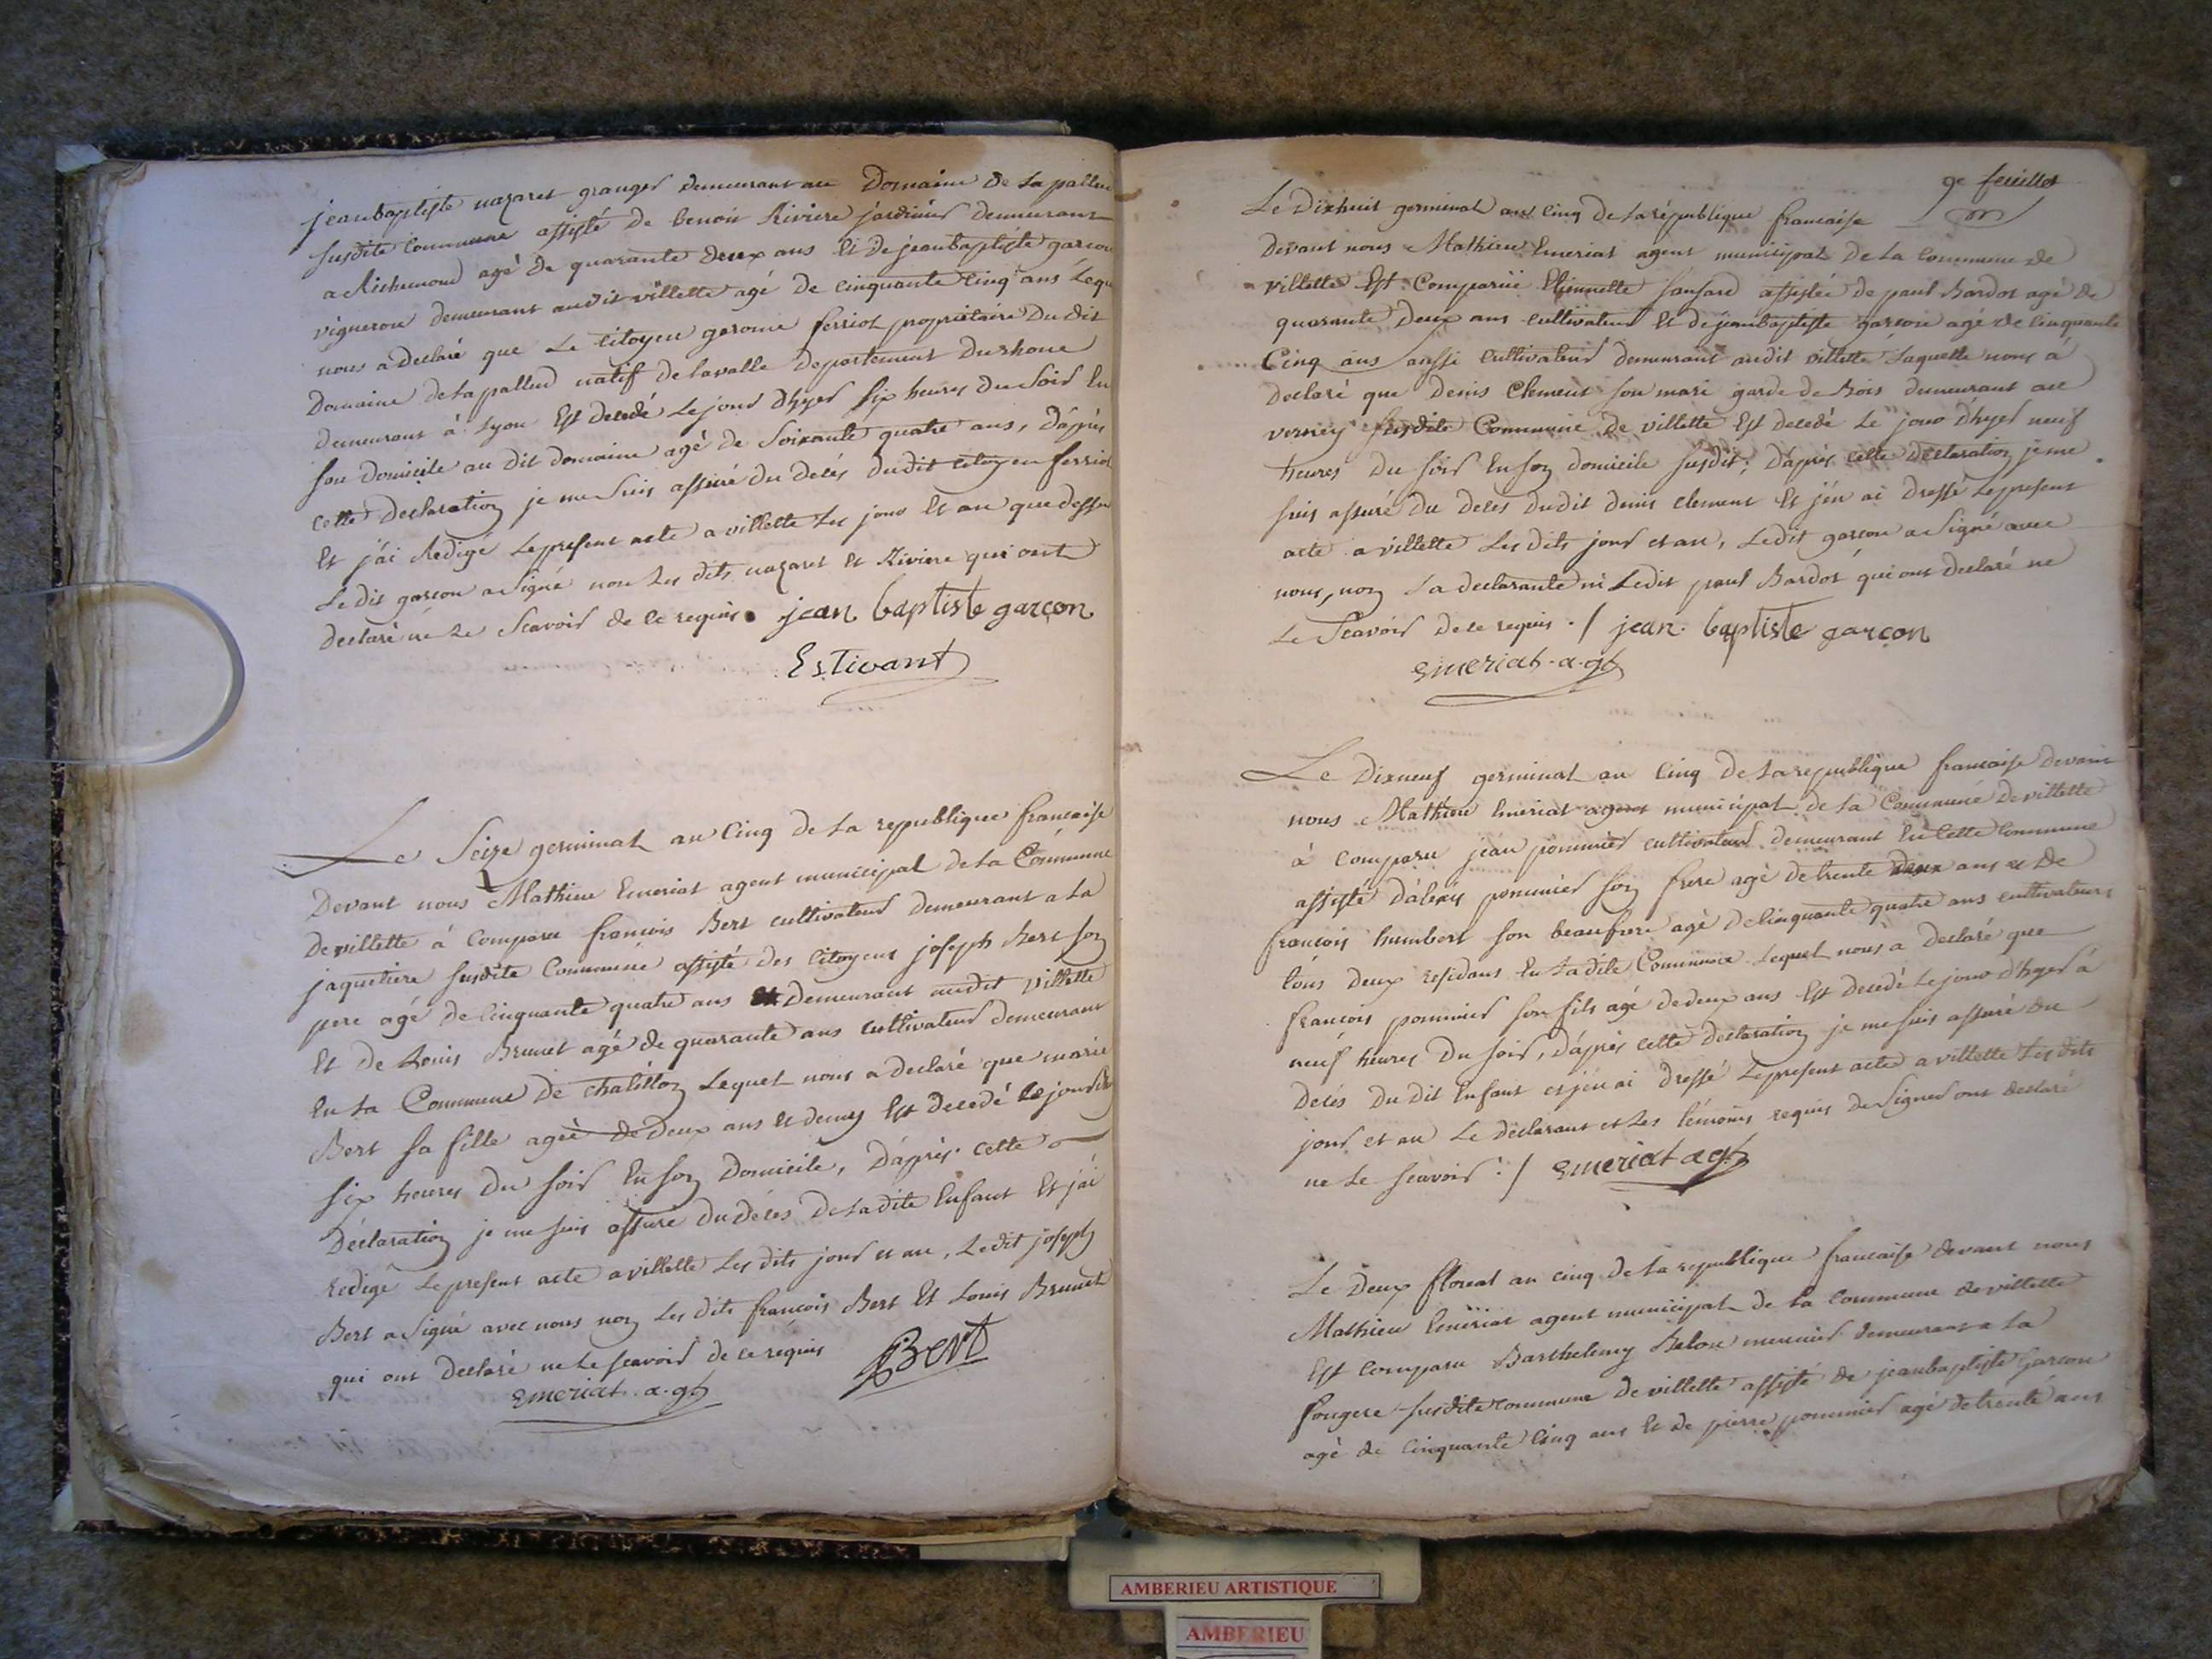 jeanbaptiste nazaret granger demeurant au Domaine de la pallud
susdite Commune assisté de benoit Riviere jardinier demeurant
a Richemond agé de quarante deux ans et de jeanbaptiste garcon
vigneron demeurant audit villette agé de cinquante cinq ans Lequ
nous a declaré que Le citoyen gerome ferriot propriétaire Du dit
Domaine de la pallud natif de lavalle departement Du rhone
demeurant à Lyon Est decedé Le jour d'hyer six heures Du Soir En
son Domicile au dit domaine agé de Soixante quatre ans, D'après
cette Declaration je me suis assuré Du decés du dit citoyen ferriot
Et j'ai Redigé Le present acte a villette Les jour Et an que dessus
Le dit garcon a Signé non Les dits nazaret et Riviere qui ont
declaré ne Le Scavoir de ce requis. jean baptiste garçon
Estivant
Le Seize germinal an Cinq de La republique francaise
Devant nous Mathieu Emeriat agent municipal de La Commune
de villette à Comparu francois Bert cultivateur demeurant a La
jaquetiere susdite Commune assisté des Citoyens joseph Bert son
pere agé de Cinquante quatre ans Demeurant audit villette
Et de Louis Brunet agé de quarante ans cultivateur demeurant
En La Commune de chatillon Lequel nous a declaré que marie
Bert sa fille ageé de Deux ans et demy Est decedé le jour d'hy
six heures Du soir En son Domicile, D'après cette
Déclaration je me suis assuré Du décés De La dite Enfant Et j'ai
redigé Le present acte a villette Les dits jour et an, Ledit joseph
Bert a Signé avec nous non Les dits francois Bert Et Louis Brunet
qui ont declaré ne Le scavoir de ce requis Bert
Emeriat . a . gt
9e feuillet
Le Dixhuit germinal an cinq de La république francaise
devant nous Mathieu Emeriat agent municipal De La Commune de
villette Est Comparüe Etiennette sansard assistée de paul Bardot agé de
quarante Deux ans cultivateur Et de jeanbaptiste garcon agé de Cinquante
Cinq ans aussi Cultivateur demeurant audit villette Laquelle nous à
declaré que Denis Clement son mari garde de Bois demeurant au
verney susdite Commune de villette Est decedé Le jour d'hyer neuf
heures Du soir En son domicile susdit, D'après cette declaration je me
suis assuré Du deces du dit denis clement Et j'en ai Dressé Le present
acte a villette Les dits jour et an, Ledit garcon a Signé avec
nous, non La declarante ni Ledit paul Bardot qui ont declaré ne
Le Scavoir de ce requis ./ jean baptiste garçon
Emeriat . a . gt
Le Dixneuf germinal an Cinq De La republique francaise Devant
nous Mathieu Emeriat agent municipal de La Commune De villette
à Comparu jean pommier cultivateur demeurant En Cette Commune
assisté D'alexis pommier son frere agé de trente deux ans et De
francois humbert son beaufrere agé de Cinquante quatre ans cultivateurs
tous deux residans En La dite Commune Lequel nous a declaré que
francois pommier son fils agé de deux ans Est decedé Le jour d'hyer à
neuf heures Du soir, D'après cette Declaration je me suis assuré Du
decés Du dit Enfant et j'en ai Dressé Le present acte a villette Les dits
jour et an Le declarant et Les témoins requis de Signer ont declaré
ne Le scavoir ./ Emeriat agt
Le Deux floreal an cinq de La republique francaise devant nous
Mathieu Emeriat agent municipal de La commune de villette
Est comparu Barthelemy Belou meunier demeurant a La
fougere susdite commune de villette assisté de jeanbaptiste Garcon
agé de Cinquante Cinq ans Et de pierre pommier agé de trente ans
AMBERIEU ARTISTIQUE
AMBERIEU